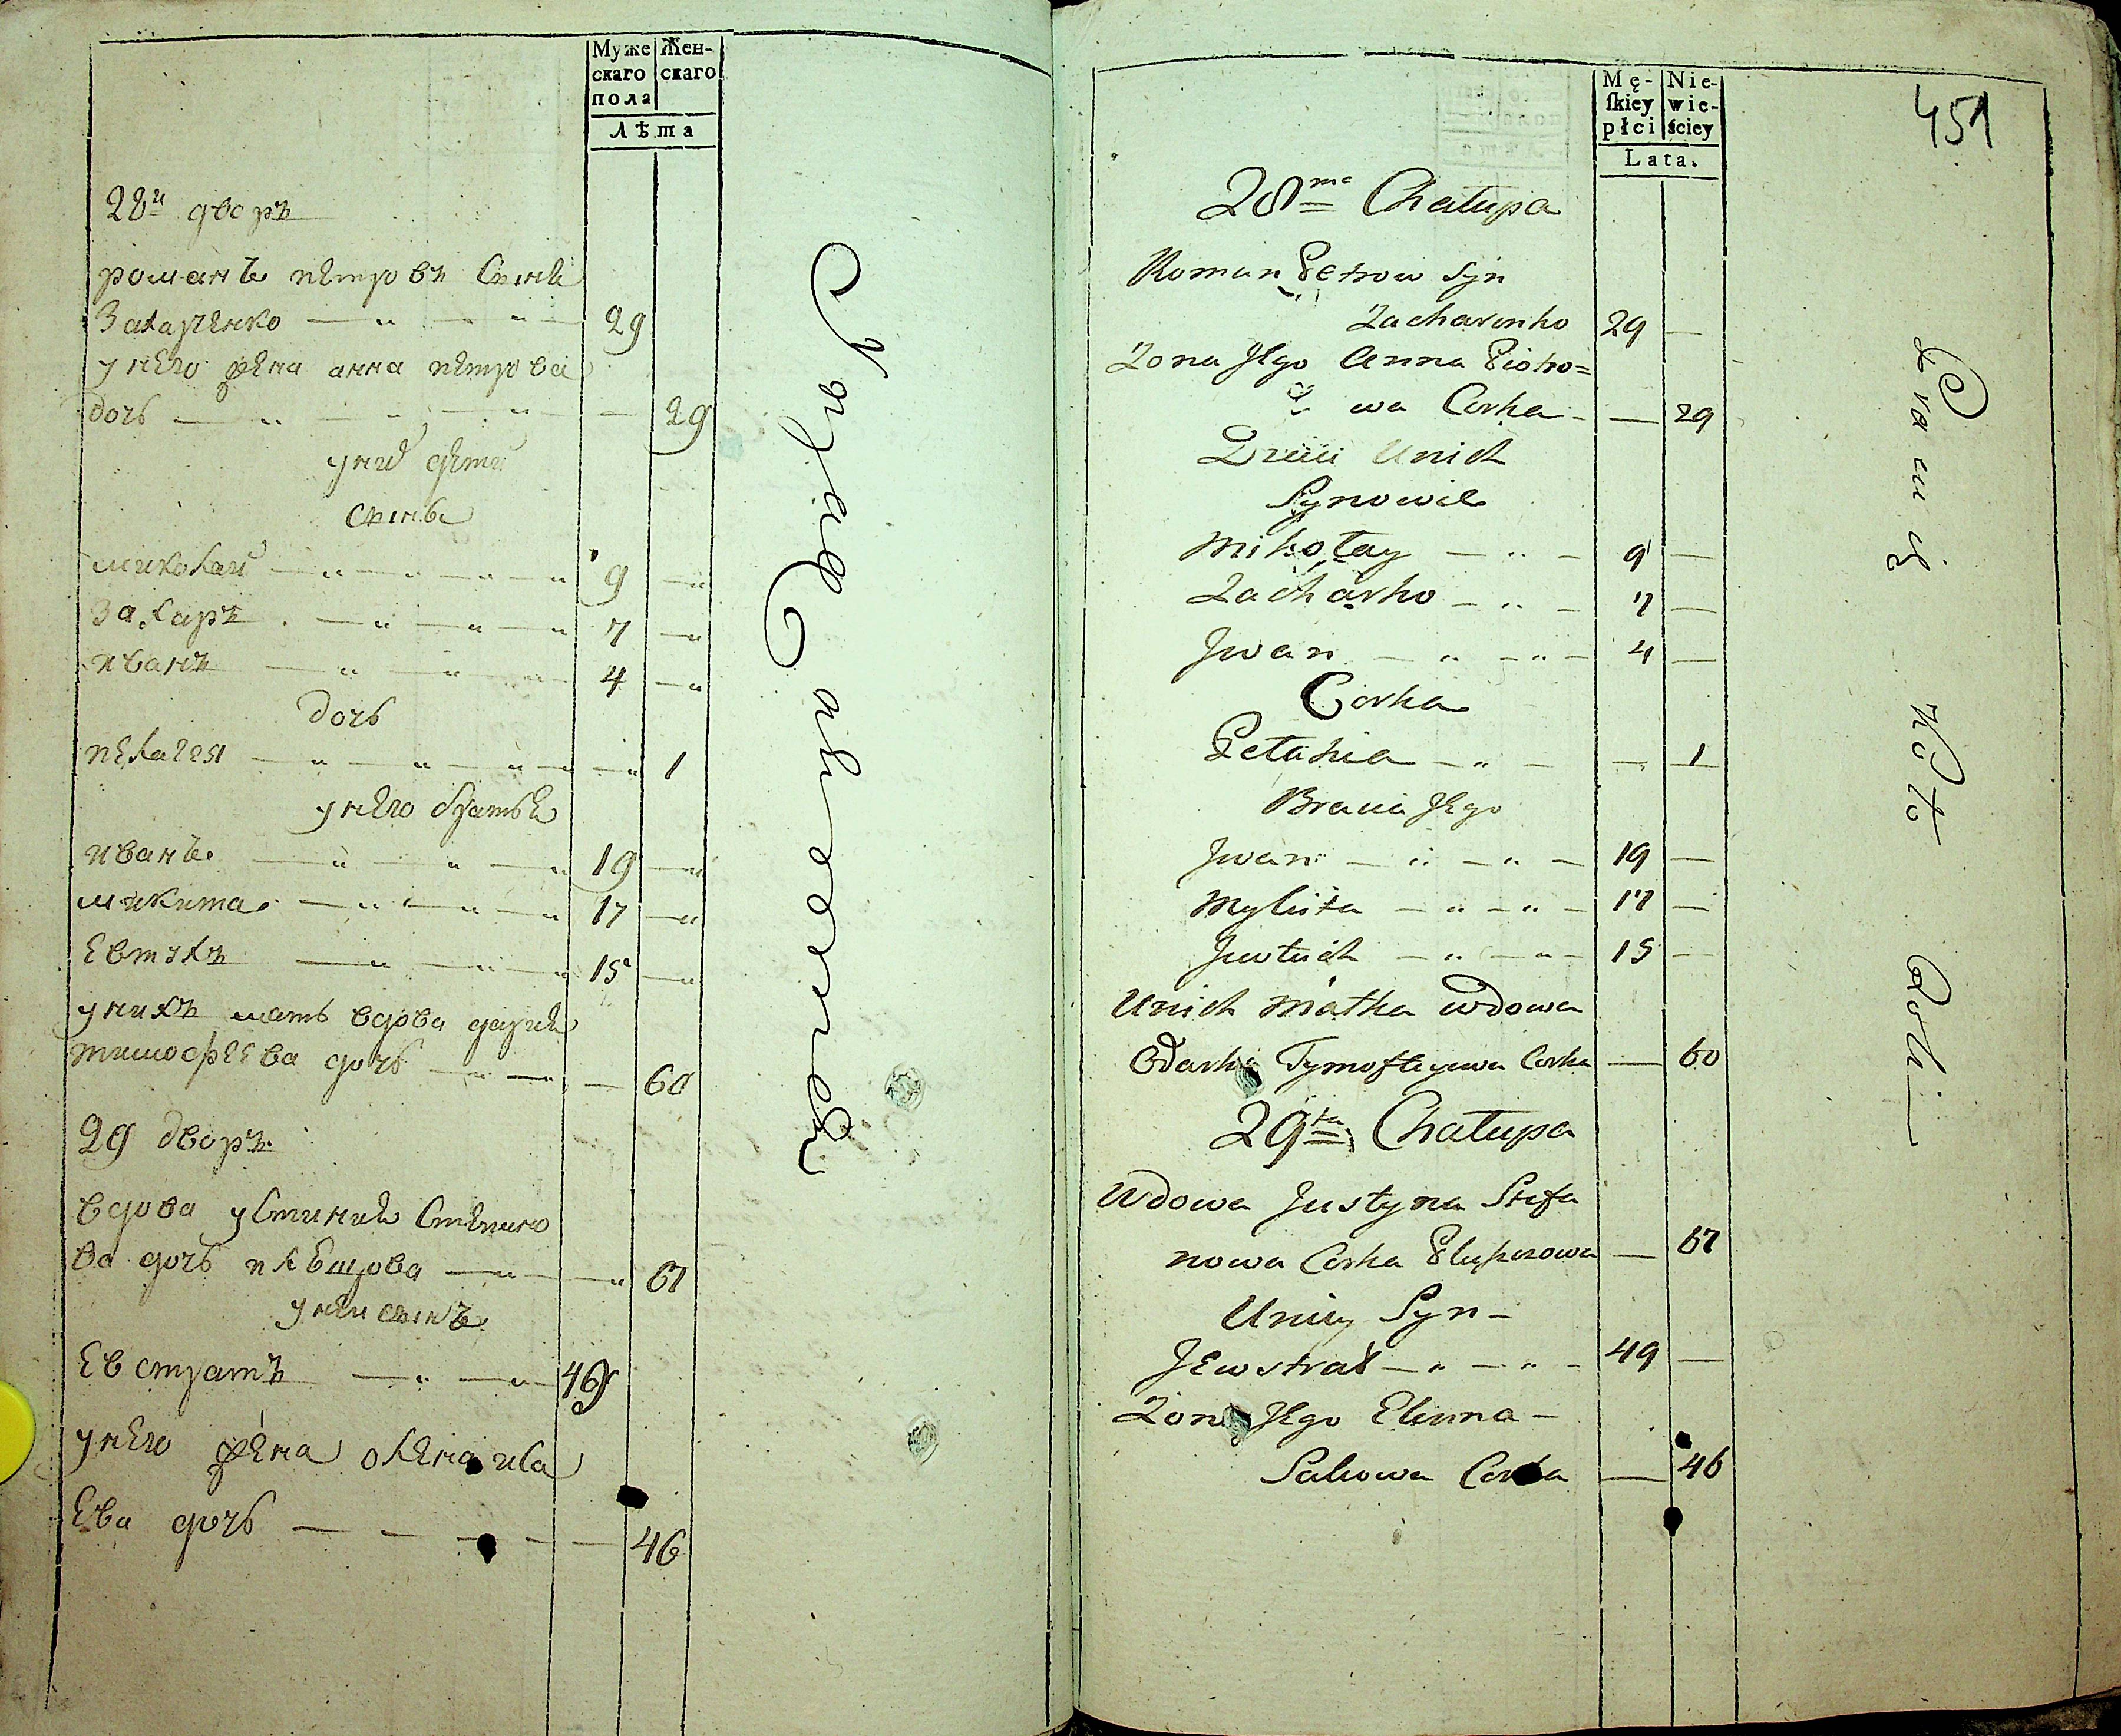 Муже
скаго
пола
Жен-
скаго
Лѣта
28й дворъ
романъ петровъ Сынъ
Захаренко — „ — „ — 29
у него жена анна петрова
дочь — „ — „ — „ — 29
у них дети
Сыны
миколай — „ — „ — „ 9 — „
Захаръ — „ — „ — „ 7 — „
иванъ — „ — „ — 4 — „
дочь
пелагея — „ — „ — „ — „ 1
у него братья
иванъ — „ — „ — „ 19 — „
микита — „ — „ — „ 17 — „
Евтухъ — „ — „ — „ 15 — „
у нихъ мать вдова дария
тимофеева дочь — „ — — 60
29 дворъ
вдова устиния Степано
ва дочь — „ — „ 67
у ней сынъ
Евстратъ — „ — „ 49
у него жена олена иса
Ева дочь — — — — — 46
Mę-
skiey
płci
Nie-
wie-
ściey
Lata.
451
28ma Chałupa
Roman Petrow Syn
Zacharenko 29 —
Żona Jego Anna Piotro=
wa Corka — — 29
Dzieci Unich
Synowie
Mikołay — „ — 9 —
Zacharko — „ — 7 —
Jwan — „ — „ — 4 —
Corka
Pełahia — „ — — 1
Bracia Jego
Jwan — „ — „ — 19 —
Mykita — „ — „ — 17 —
Jewtuch — „ — „ — 15 —
Unich Matka Wdowa
Odarka Tymofteyewa Corka — 60
29ta Chałupa
Wdowa Justyna Stefa
nowa Corka — 67
Uniey Syn —
Jewstrat — „ — „ — 49 —
Żona Jego Elenna —
Corka — 46